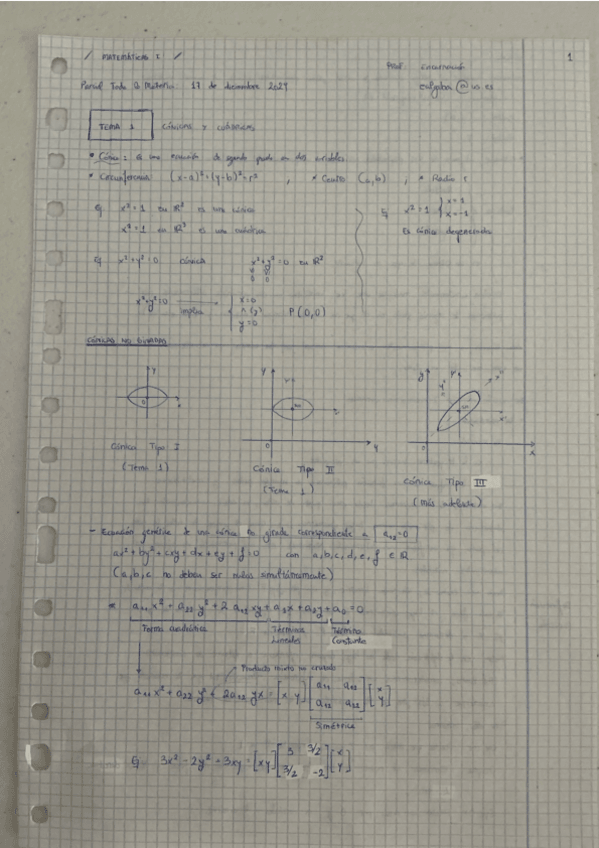 / MATEMÁTICAS I /
1
Parcial Toda la Materia 17 de diciembre 2024
TEMA 1 CÓNICAS Y CUÁDRICAS
• Cónica: Es una ecuación de segundo grado en dos variables
• Circunferencia (x-a)²+(y-b)²=r² , * Centro (a,b) ; * Radio r
Ej x²=1 en ℝ² es una cónica
x²=1 en ℝ³ es una cuádrica
Ej x²=1 { x=1 x=-1
Es cónica degenerada
Ej x²+y²=0 cónica x²+y²=0 en ℝ²
0 0
x²+y²=0 implica { x=0 ∧ (y) y=0 P(0,0)
CÓNICAS NO GIRADAS
Cónica Tipo I
(Tema 1)
Cónica Tipo II
(Tema 1)
Cónica Tipo III
(Más adelante)
- Ecuación genérica de una cónica no girada correspondiente a a₁₂=0
ax²+by²+cxy+dx+ey+f=0 con a,b,c,d,e,f ∈ ℝ
(a,b,c no deben ser nulos simultáneamente)
a₁₁x²+a₂₂y²+2a₁₂xy+a₁x+a₂y+a₀=0
Forma cuadrática Términos Lineales Término Constante
Producto mixto o cruzado
a₁₁x²+a₂₂y²+2a₁₂yx=[x y][a₁₁ a₁₂ a₁₂ a₂₂][x y]
Simétrica
Ej 3x²-2y²+3xy=[x y][3 3/2 3/2 -2][x y]